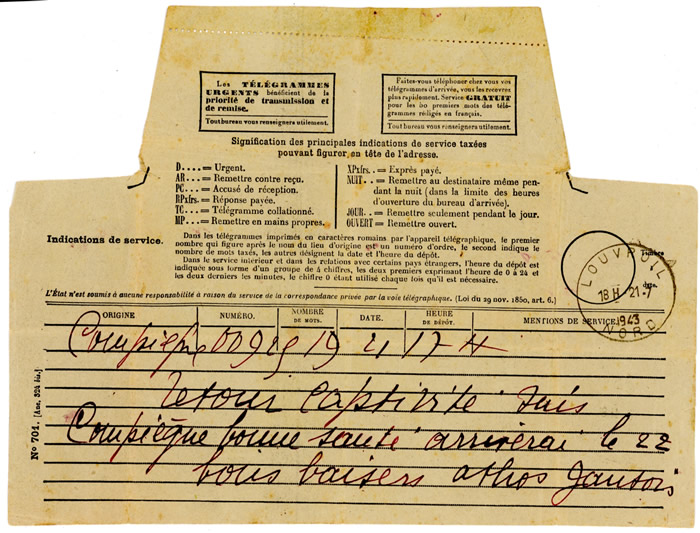 Les TÉLÉGRAMMES
URGENTS bénéficient de la
priorité de transmission et
de remise.
Tout bureau vous renseignera utilement.
Faites-vous téléphoner chez vous vos
télégrammes d'arrivée, vous les recevrez
plus rapidement. Service GRATUIT
pour les 50 premiers mots des télé-
grammes rédigés en français.
Tout bureau vous renseignera utilement.
Signification des principales indications de service taxées
pouvant figurer en tête de l'adresse.
D.... = Urgent.
AR... = Remettre contre reçu.
PC... = Accusé de réception.
RPxfrs. = Réponse payée.
TC... = Télégramme collationné.
MP... = Remettre en mains propres.
XPxfrs.. = Exprès payé.
NUIT.. = Remettre au destinataire même pen-
dant la nuit (dans la limite des heures
d'ouverture du bureau d'arrivée).
JOUR.. = Remettre seulement pendant le jour.
OUVERT = Remettre ouvert.
Indications de service.
Dans les télégrammes imprimés en caractères romains par l'appareil télégraphique, le premier
nombre qui figure après le nom du lieu d'origine est un numéro d'ordre, le second indique le
nombre de mots taxés, les autres désignent la date et l'heure du dépôt.
Dans le service intérieur et dans les relations avec certains pays étrangers, l'heure du dépôt est
indiquée sous forme d'un groupe de 4 chiffres, les deux premiers exprimant l'heure de 0 à 24 et
les deux derniers les minutes, le chiffre 0 étant utilisé chaque fois qu'il est nécessaire.
Timbre
LOUVROIL
18H 21-7
1943
NORD
L'État n'est soumis à aucune responsabilité à raison du service de la correspondance privée par la voie télégraphique. (Loi du 29 nov. 1850, art. 6.)
ORIGINE NUMÉRO. NOMBRE DE MOTS. DATE. HEURE DE DÉPÔT. MENTIONS DE SERVICE
Compiègne 009 19 21 17 H
retour captivité suis
Compiègne bonne santé arriverai le 22
bons baisers athos Jautois
N° 701. [Anc. 324 bis.]